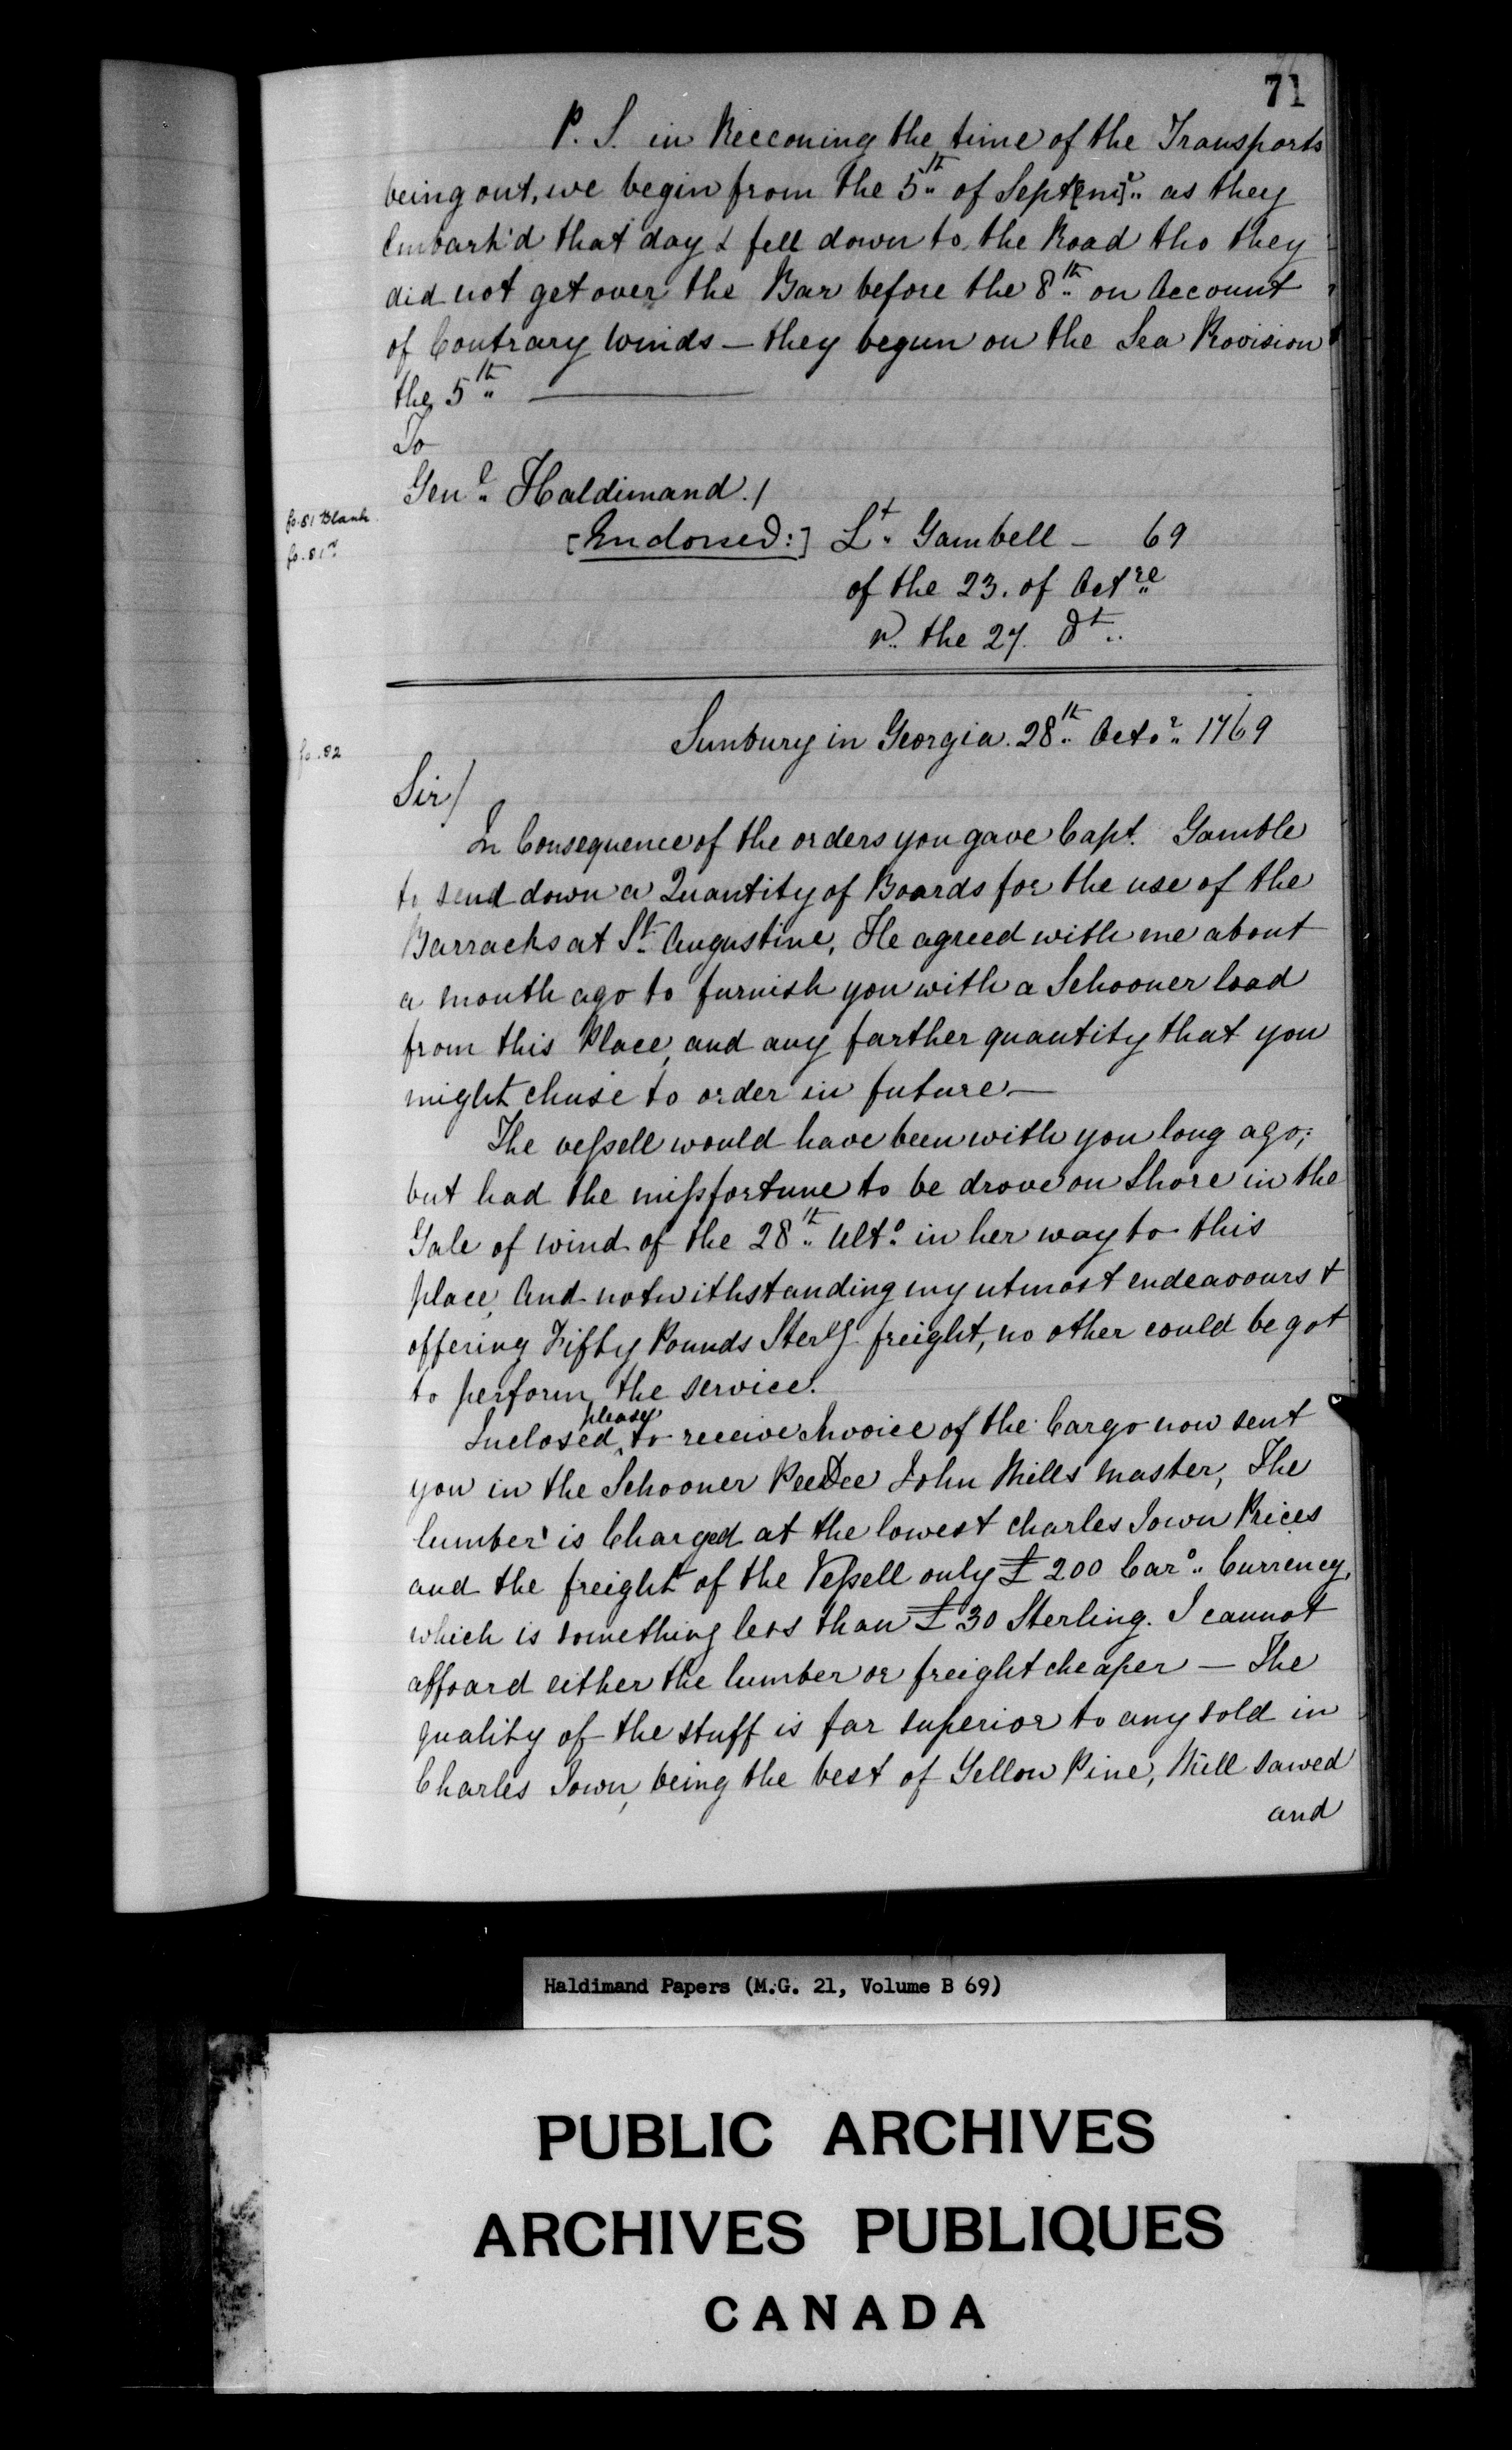 71
P. S. in Recconing the time of the Transports
being out, we begin from the 5th of Sept[em]r as they
Embark'd that day & fell down to the Road tho they
did not get over the Bar before the 8th on Account
of Contrary Winds — they begun on the Sea Provision
the 5th
To
Genl Haldimand./
fo. 81 Blank
[Endorsed:] Lt Gambell — 69
fo. 81vo
of the 23. of Octre
r. the 27. dt
Sunbury in Georgia. 28th Octor 1769
fo. 82
Sir/
In Consequence of the orders you gave Capt. Gamble
to send down a Quantity of Boards for the use of the
Barracks at St Augustine, He agreed with me about
a month ago to furnish you with a Schooner load
from this Place, and any farther quantity that you
might chuse to order in future —
The veßsell would have been with you long ago;
but had the mißfortune to be drove on Shore in the
Gale of wind of the 28th Ulto in her way to this
place, And notwithstanding my utmost endeavours &
offering Fifty Pounds Sterlg freight, no other could be got
to perform the service.
Inclosed please to receive Invoice of the Cargo now sent
you in the Schooner PeeDee John Mills Master, The
lumber is Charged at the lowest Charles Town Prices
and the freight of the Veßell only £200 Caro Currency,
which is something less than £30 Sterling. I cannot
affoard either the lumber or freight cheaper — The
quality of the stuff is far superior to any sold in
Charles Town, being the best of Yellow Pine, Mill sawed
and
Haldimand Papers (M.G. 21, Volume B 69)
PUBLIC ARCHIVES
ARCHIVES PUBLIQUES
CANADA